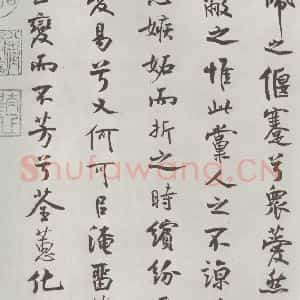 之偃蹇兮衆薆然
蔽之惟此黨人之不諒
嫉妬而折之時繽紛
變易兮又何可㠯淹留
變而不芳兮荃蕙化
Shufawang.CN